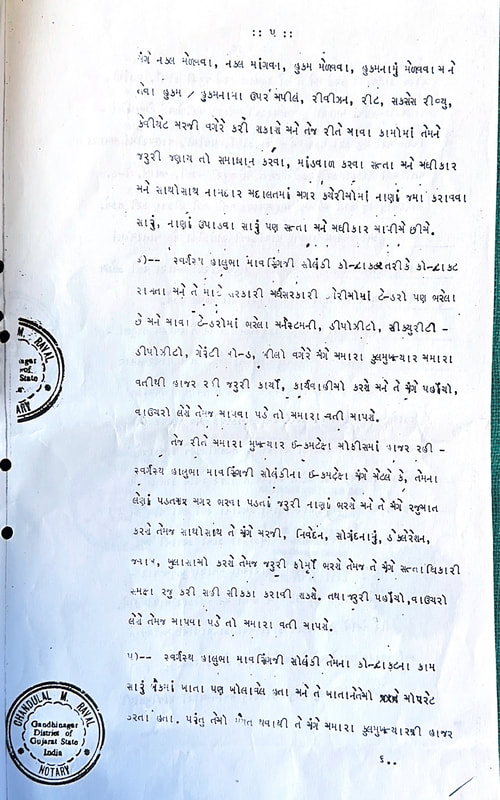 :: ૫ ::
અંગે નકલ મેળવવા, નકલ માંગવા, હુકમ મેળવવા, હુકમનામું મેળવવા અને
તેવા હુકમ / હુકમનામા ઉપર અપીલ, રીવીઝન, રીટ, સકસેસ રીવ્યુ,
કેવીયેટ અરજી વગેરે કરી શકાશે અને તેજ રીતે આવા કામોમાં તેમને
જરૂરી જણાય તો સમાધાન કરવા, માંડવાળ કરવા સત્તા અને અધીકાર
અને સાથોસાથ નામદાર અદાલતમાં અગર કચેરીઓમાં નાણાં જમા કરાવવા
સારું, નાણાં ઉપાડવા સારું પણ સત્તા અને અધીકાર આપીએ છીએ.
૪)-- સ્વર્ગસ્થ હાલુભા માવસિંગજી સોલંકી કોન્ટ્રાકટર તરીકે કોન્ટ્રાકટ
રાખતા અને તે માટે સરકારી અર્ધસરકારી કચેરીઓમાં ટેન્ડરો પણ ભરેલા
છે અને આવા ટેન્ડરોમાં ભરેલા અર્નેસ્ટમની, ડીપોઝીટો, સીક્યુરીટી -
ડીપોઝીટો, ગેરંટી બોન્ડ, બીલો વગેરે અંગે અમારા કુલમુખત્યાર અમારા
વતીથી હાજર રહી જરૂરી કાર્યો, કાર્યવાહીઓ કરશે અને તે અંગે પહોંચો,
વાઉચરો લેશે તેમજ આપવા પડે તો અમારા વતી આપશે.
તેજ રીતે અમારા મુખત્યાર ઈન્કમટેક્ષ ઓફીસમાં હાજર રહી -
સ્વર્ગસ્થ હાલુભા માવસિંગજી સોલંકીના ઈન્કમટેક્ષ અંગે એટલે કે, તેમના
લેણાં પડતા અગર ભરવા પડતાં જરૂરી નાણાં ભરશે અને તે અંગે રજુઆત
કરશે તેમજ સાથોસાથ તે અંગે અરજી, નિવેદન, સોગંદનામું, ડેક્લેરેશન,
જવાબ, ખુલાસાઓ કરશે તેમજ જરૂરી ફોર્મો ભરશે તેમજ તે અંગે સત્તાધિકારી
સમક્ષ રજુ કરી સહી સીકકા કરાવી શકશે. તથા જરૂરી પહોંચો, વાઉચરો
લેશે તેમજ આપવા પડે તો અમારા વતી આપશે.
૫)-- સ્વર્ગસ્થ હાલુભા માવસિંગજી સોલંકી તેમના કોન્ટ્રાકટના કામ
સારું બેંકમાં ખાતા પણ ખોલાવેલ હતા અને તે ખાતાનેતેઓ ઓપરેટ
કરતા હતા. પરંતુ તેઓ થવાથી તે અંગે અમારા કુલમુખત્યારશ્રી હાજર
૬..
M. RAVAL
NOTARY
CHANDULAL M. RAVAL
Gandhinagar
District of
Gujarat State
India
NOTARY